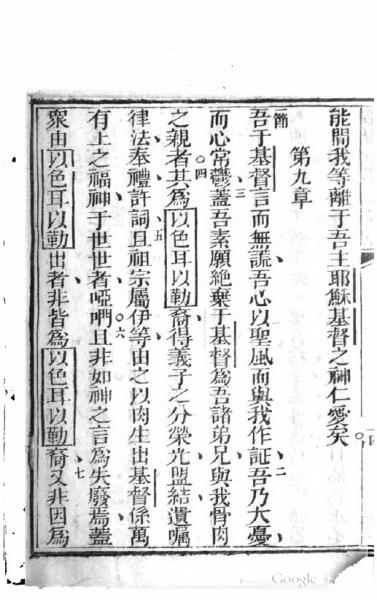 能間我等離于吾主耶穌基督之神仁愛矣
第九章
一節
吾于基督言而無謊吾心以聖風而與我作証吾乃大憂
而心常鬱蓋吾素願絶棄于基督為吾諸弟兄與我骨肉
之親者其為以色耳以勒裔得義子之分榮光盟結遺囑
律法奉禮許詞且祖宗屬伊等由之以肉生出基督係萬
有上之福神于世世者啞們且非如神之言為失廢焉蓋
衆由以色耳以勒出者非皆為以色耳以勒裔又非因為
二
三
四
五
六
七
Google